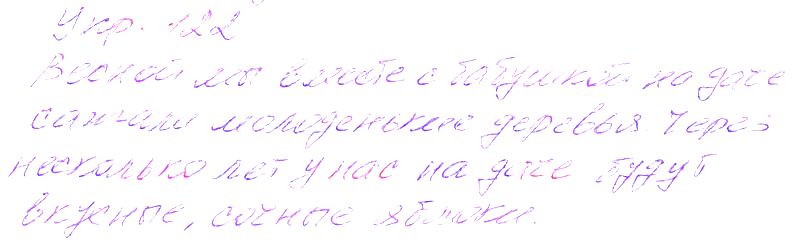 Упр. 122
Весной мы вместе с бабушкой на даче
сажали молоденькие деревья. Через
несколько лет у нас на даче будут
вкусные, сочные яблоки.